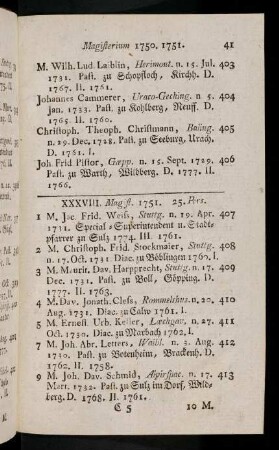 Magisterium 1750. 1751. 41
M. Wilh. Lud. Laiblin, Herimont. n. 15. Jul. 403
1731. Past. zu Schopfloch, Kirchh. D.
1767. II. 1761.
Johannes Cammerer, Uraco-Geching. n. 5. 404
jan. 1733. Past. zu Kohlberg, Neuff. D.
1765. II. 1760.
Christoph. Theoph. Christmann, Baling. 405
n. 19. Dec. 1728. Past. zu Seeburg, Urach.
D. 1761. I.
Joh. Frid Pistor, Gæpp. n. 15. Sept. 1729. 406
Past. zu Warth, Wildberg. D. 1777. II.
1766.
XXXVIII. Magist. 1751. 25. Pers.
1 M. Jac. Frid. Weiss, Stuttg. n. 19. Apr. 407
1731. Special-Superintendent u. Stadt-
pfarrer zu Sulz 1774. III. 1761.
2 M. Christoph. Frid. Stockmaier, Stuttg. 408
n. 17. Oct. 1731. Diac. zu Böblingen 1760. I.
3 M. Maurit. Dav. Harpprecht, Stuttg. n. 17. 409
Dec. 1731. Past. zu Boll, Göpping. D.
1777. II. 1763.
4 M. Dav. Jonath. Cless, n. 20. 410
Aug. 1731. Diac. zu Calw 1761. I.
5 M. Ernest Urb. Keller, n. 27. 411
Oct. 1730. Diac. zu Marbach 1762. I.
7 M. Joh. Abr. Letters, Waibl. n. 3. Aug. 412
1730. Past. zu Botenheim, Brackenh. D.
1762. II. 1758.
9 M. Joh. Dav. Schmid, n. 17. 413
Mart. 1732. Past. zu Sulz im Dorf, Wild-
berg. D. 1768. II. 1761.
C 5 10 M.